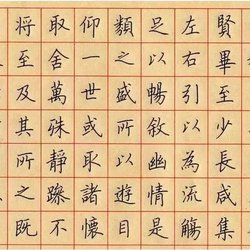 賢畢至少長咸集
左右引以為流觴
足以暢敘幽情是
類之盛所以遊目
仰一世或取諸懷
取舍萬殊靜躁不
将至及其所之既